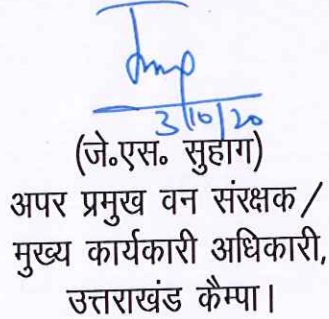 3/10/20
(जे॰एस॰ सुहाग)
अपर प्रमुख वन संरक्षक /
मुख्य कार्यकारी अधिकारी,
उत्तराखंड कैम्पा।